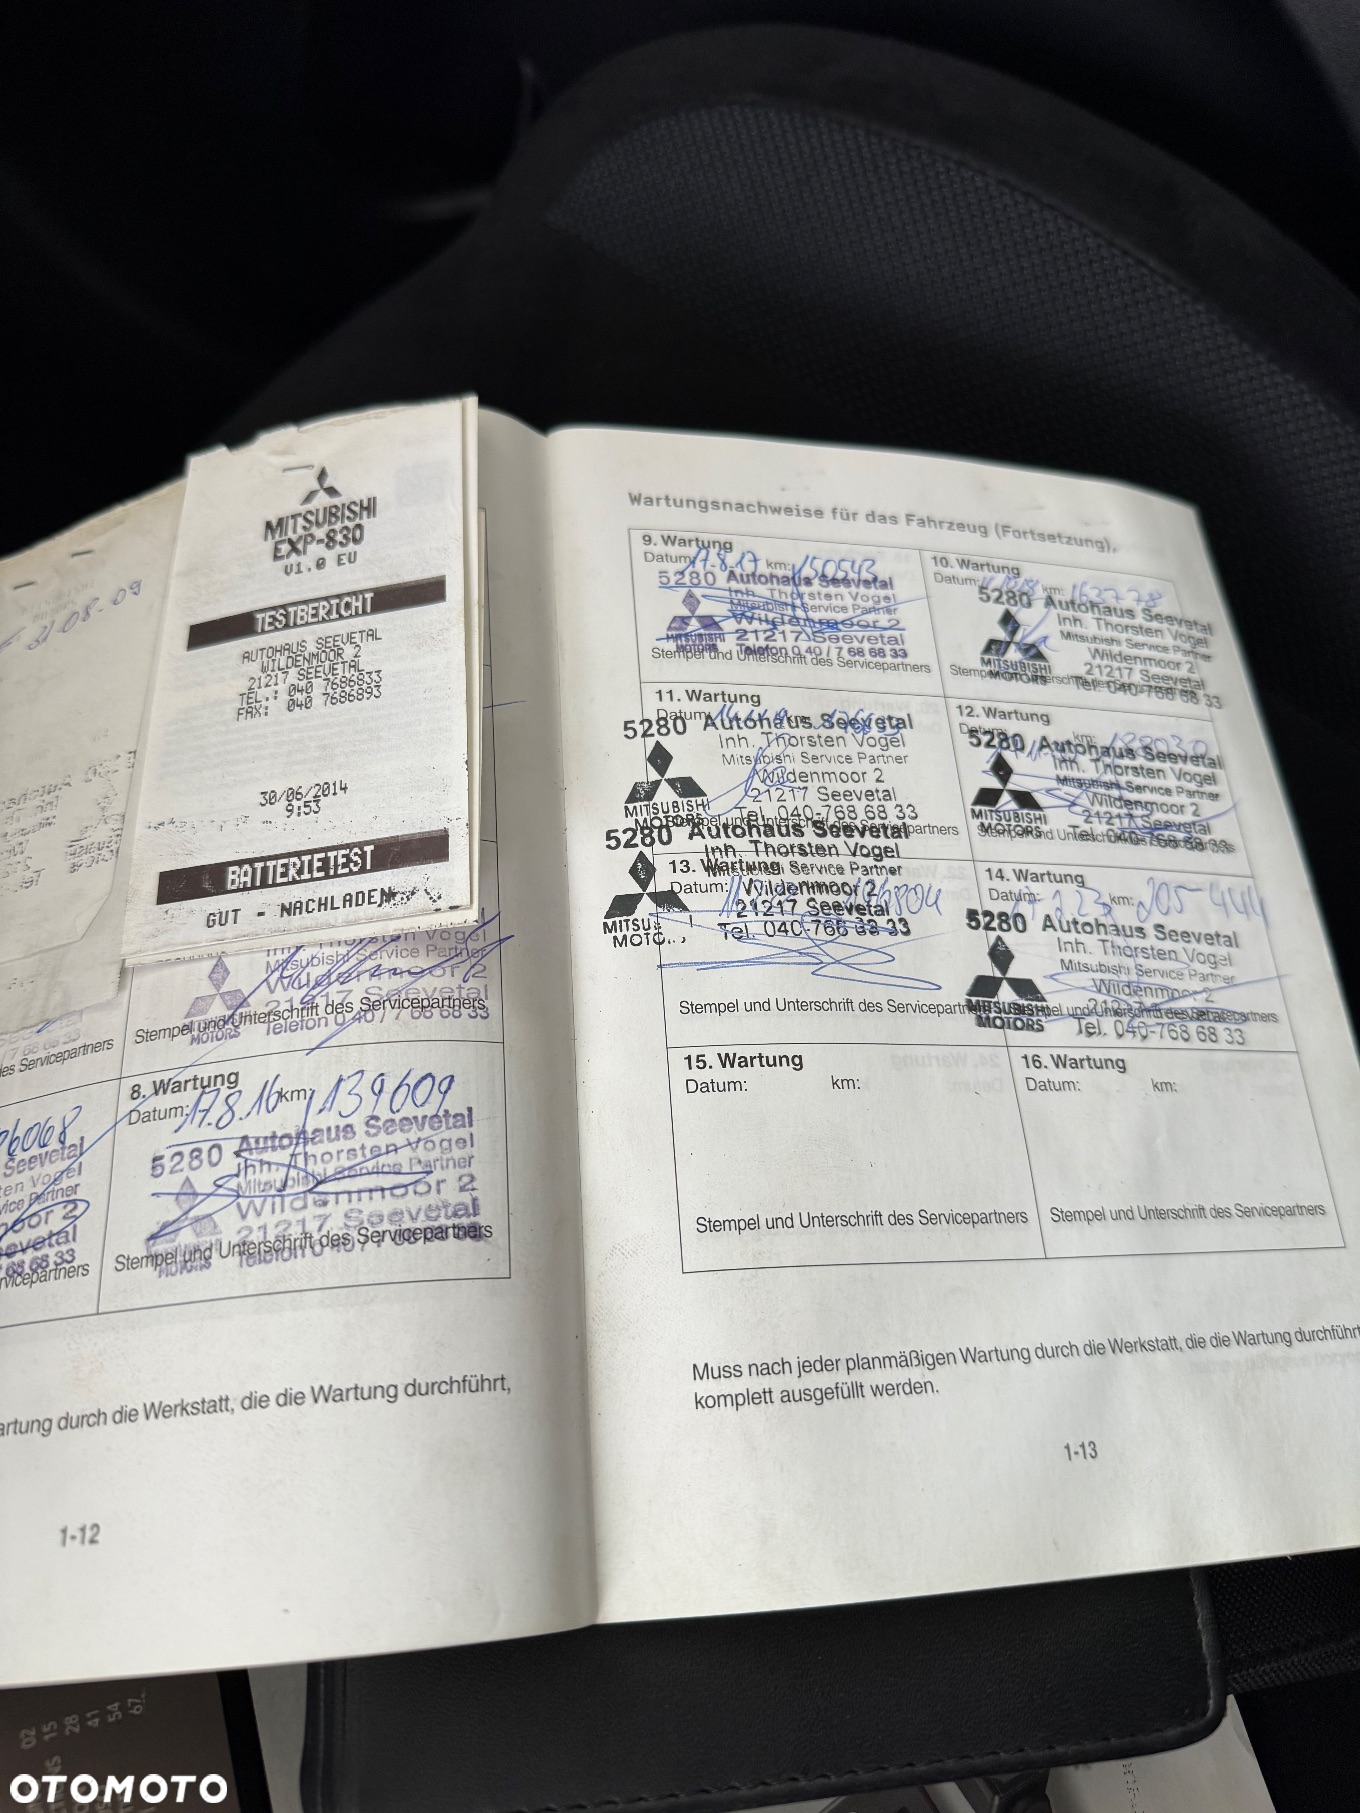 31.08.09
MITSUBISHI
EXP-830
V1.0 EU
TESTBERICHT
AUTOHAUS SEEVETAL
WILDENMOOR 2
21217 SEEVETAL
TEL.: 040 7686833
FAX: 040 7686893
30/06/2014
9:53
BATTERIETEST
GUT - NACHLADEN
Thorsten Vogel
Mitsubishi Service Partner
Wildenmoor 2
21217 Seevetal
Stempel und Unterschrift des Servicepartners
MOTORS Telefon 0 40 / 7 68 68 33
des Servicepartners
8. Wartung
Datum: 17.8.16 km: 139609
5280 Autohaus Seevetal
Inh. Thorsten Vogel
Mitsubishi Service Partner
Wildenmoor 2
21217 Seevetal
Stempel und Unterschrift des Servicepartners
MOTORS Telefon 0 40 /
6068
Seevetal
Servicepartners
artung durch die Werkstatt, die die Wartung durchführt,
1-12
Wartungsnachweise für das Fahrzeug (Fortsetzung)
9. Wartung
Datum: 17.8.17 km: 150543
5280 Autohaus Seevetal
Inh. Thorsten Vogel
Mitsubishi Service Partner
Wildenmoor 2
MITSUBISHI 21217 Seevetal
MOTORS Telefon 0 40 / 7 68 68 33
Stempel und Unterschrift des Servicepartners
10. Wartung
Datum: km: 163778
5280 Autohaus Seevetal
Inh. Thorsten Vogel
Mitsubishi Service Partner
Wildenmoor 2
MITSUBISHI 21217 Seevetal
MOTORS Tel. 040-768 68 33
11. Wartung
Datum: km:
5280 Autohaus Seevetal
Inh. Thorsten Vogel
Mitsubishi Service Partner
Wildenmoor 2
MITSUBISHI 21217 Seevetal
MOTORS Tel. 040-768 68 33
12. Wartung
km:
5280 Autohaus Seevetal
Inh. Thorsten Vogel
Mitsubishi Service Partner
Wildenmoor 2
MITSUBISHI 21217 Seevetal
MOTORS Tel. 040-768 68 33
13. Wartung
Datum:
5280 Autohaus Seevetal
Inh. Thorsten Vogel
Mitsubishi Service Partner
Wildenmoor 2
21217 Seevetal
Tel. 040-768 68 33
Stempel und Unterschrift des Servicepartners
14. Wartung
Datum: km: 205444
5280 Autohaus Seevetal
Inh. Thorsten Vogel
Mitsubishi Service Partner
Wildenmoor 2
MITSUBISHI
MOTORS Tel. 040-768 68 33
15. Wartung
Datum: km:
Stempel und Unterschrift des Servicepartners
16. Wartung
Datum: km:
Stempel und Unterschrift des Servicepartners
Muss nach jeder planmäßigen Wartung durch die Werkstatt, die die Wartung durchführt
komplett ausgefüllt werden.
1-13
02
15
28
41
54
67
OTOMOTO